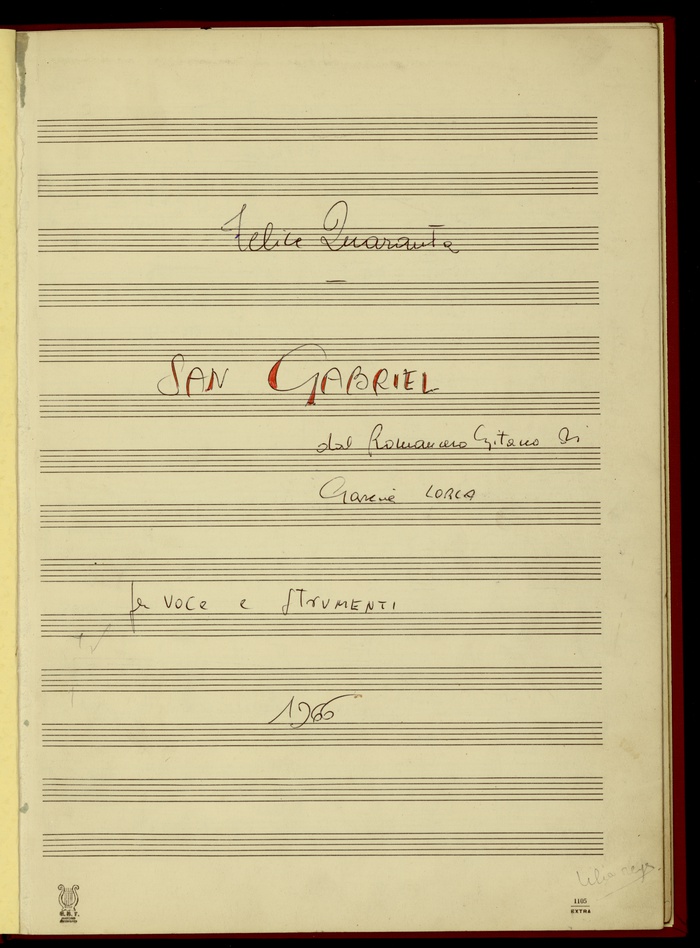 Felice Quaranta
SAN GABRIEL
dal Romancero Gitano di
Garcia LORCA
per VOCE e STRUMENTI
1966
1105
EXTRA